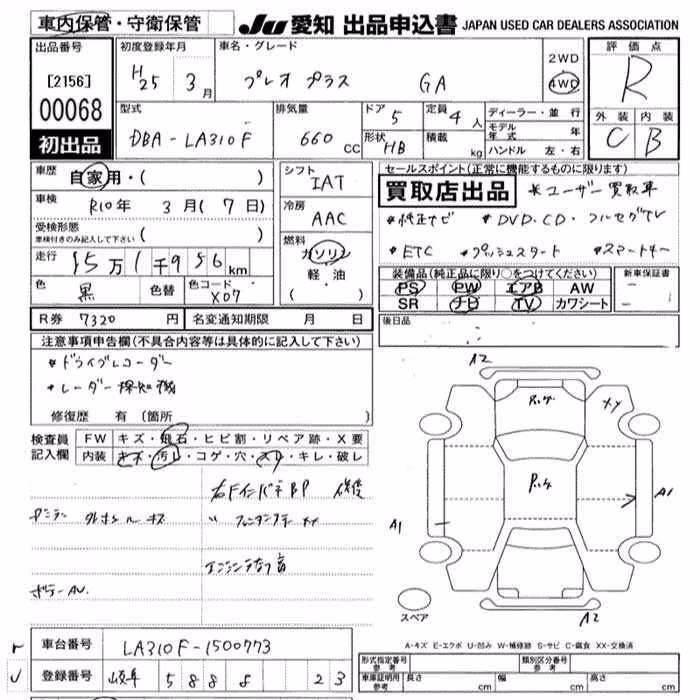 車内保管・守衛保管 JU 愛知 出品申込書 JAPAN USED CAR DEALERS ASSOCIATION
出品番号 初度登録年月 車名・グレード 2WD 評価点
[2156] H25 3月 プレオ プラス GA 4WD R
00068 型式 排気量 ドア 5 定員 4人 ディーラー・並行 外装 内装
初出品 DBA-LA310F 660cc 形状 HB 積載 kg モデル年式 年 C B
ハンドル 左・右
車歴 自家用・( ) シフト IAT セールスポイント(正常に機能するものに限ります)
車検 R10年 3月(7日) 冷房 AAC 買取店出品 *ユーザー買取車
受検形態 車検付きのみ記入して下さい ( ) *純正ナビ *DVD.CD・フルセグTV
走行 15万1千956km 燃料 ガソリン *ETC *プッシュスタート *スマートキー
軽・油 装備品(純正品に限り○をつけてください) 新車保証書
色 黒 色替 色コード X07 ( ・ ) PS PW エアB AW
SR ナビ TV カワシート
R券 7320円 名変通知期限 月 日 後日品
注意事項申告欄(不具合内容等は具体的に記入して下さい)
*ドライブレコーダー
*レーダー探知機
修復歴 有 (箇所 )
検査員 FW キズ・飛石・ヒビ割・リペア跡・X要
記入欄 内装 キズ・汚レ・コゲ・穴・スレ・キレ・破レ
A2
XY
A1
A1
A2
スペア
ボデーAU.
A-キズ E-エクボ U-凹み W-補修跡 S-サビ C-腐食 XX-交換済
車台番号 LA310F-1500773 形式指定番号 参考 類別区分番号 参考
登録番号 岐阜 588 8 23 車庫証明用 参考 長さ cm 幅 cm 高さ cm